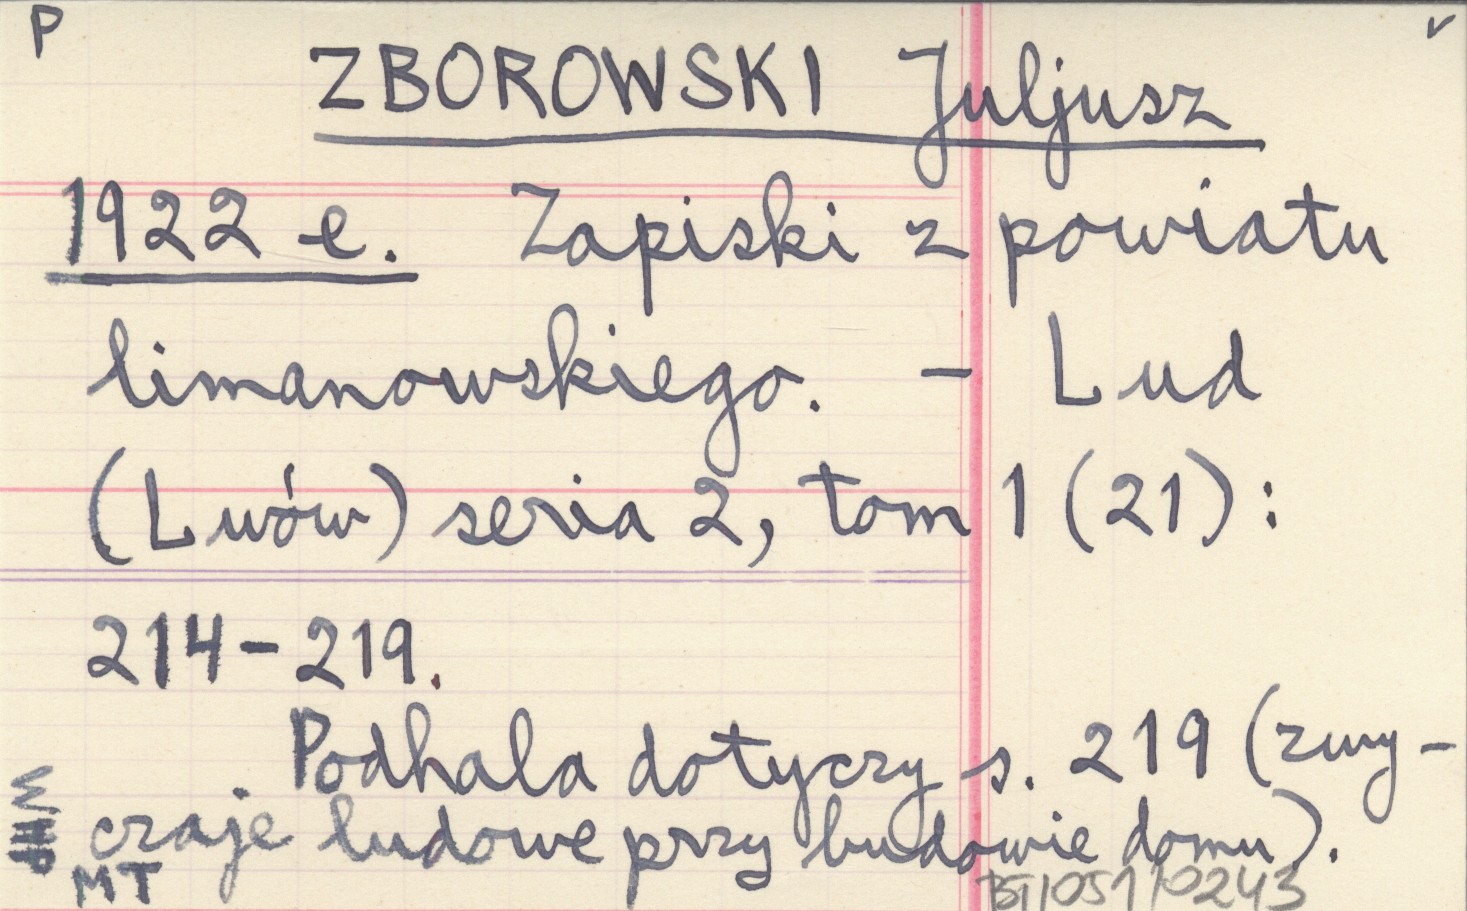 P
ZBOROWSKI Juljusz
1922 e. Zapiski z powiatu
limanowskiego. - Lud
(Lwów) seria 2, tom 1 (21):
214-219.
Podhala dotyczy s. 219 (zwy-
czaje ludowe przy budowie domu).
MT